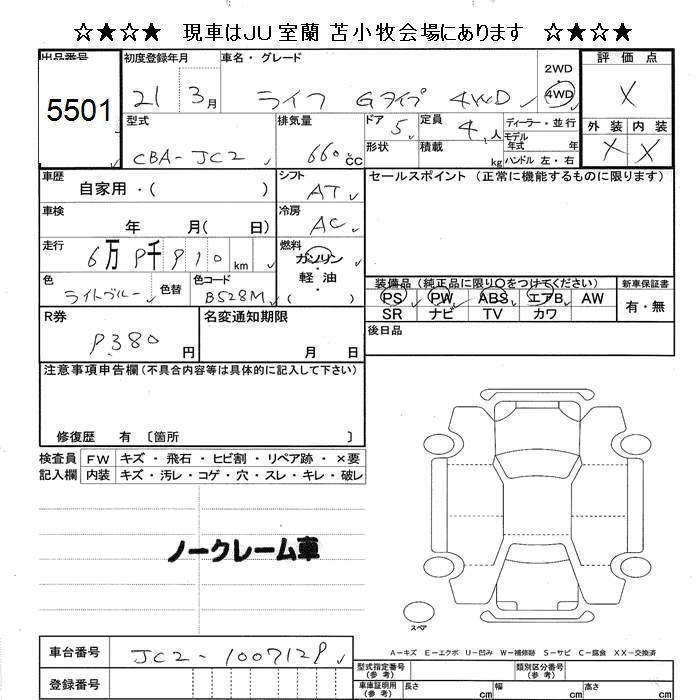 ☆★☆★ 現車はJU室蘭 苫小牧会場にあります ☆★☆★
出品番号 初度登録年月 車名・グレード 2WD 4WD 評価点
5501 21 3月 ライフ Gタイプ 4WD X
型式 排気量 ドア 定員 ディーラー・並行 外装 内装
CBA-JC2 660cc 5 4人 モデル年式 年 X X
形状 積載 kg ハンドル 左・右
車歴 シフト セールスポイント (正常に機能するものに限ります)
自家用・( ) AT
車検 冷房
年 月( 日) AC
走行 燃料
6万 9千 910 km ガソリン・軽油 ( )
色 色替 色コード 装備品 (純正品に限り○をつけてください) 新車保証書
ライトブルー B528M PS PW ABS エアB AW 有・無
SR ナビ TV カワ
R券 名変通知期限 後日品
9380円 月 日
注意事項申告欄 (不具合内容等は具体的に記入して下さい)
修復歴 有 〔箇所 〕
検査員 FW キズ・飛石・ヒビ割・リペア跡・×要
記入欄 内装 キズ・汚レ・コゲ・穴・スレ・キレ・破レ
ノークレーム車
スペア
A-キズ E-エクボ U-凹み W-補修跡 S-サビ C-腐食 XX-交換済
車台番号 JC2-1007129 型式指定番号 (参考) 類別区分番号 (参考)
登録番号 車庫証明用 (参考) 長さ cm 幅 cm 高さ cm